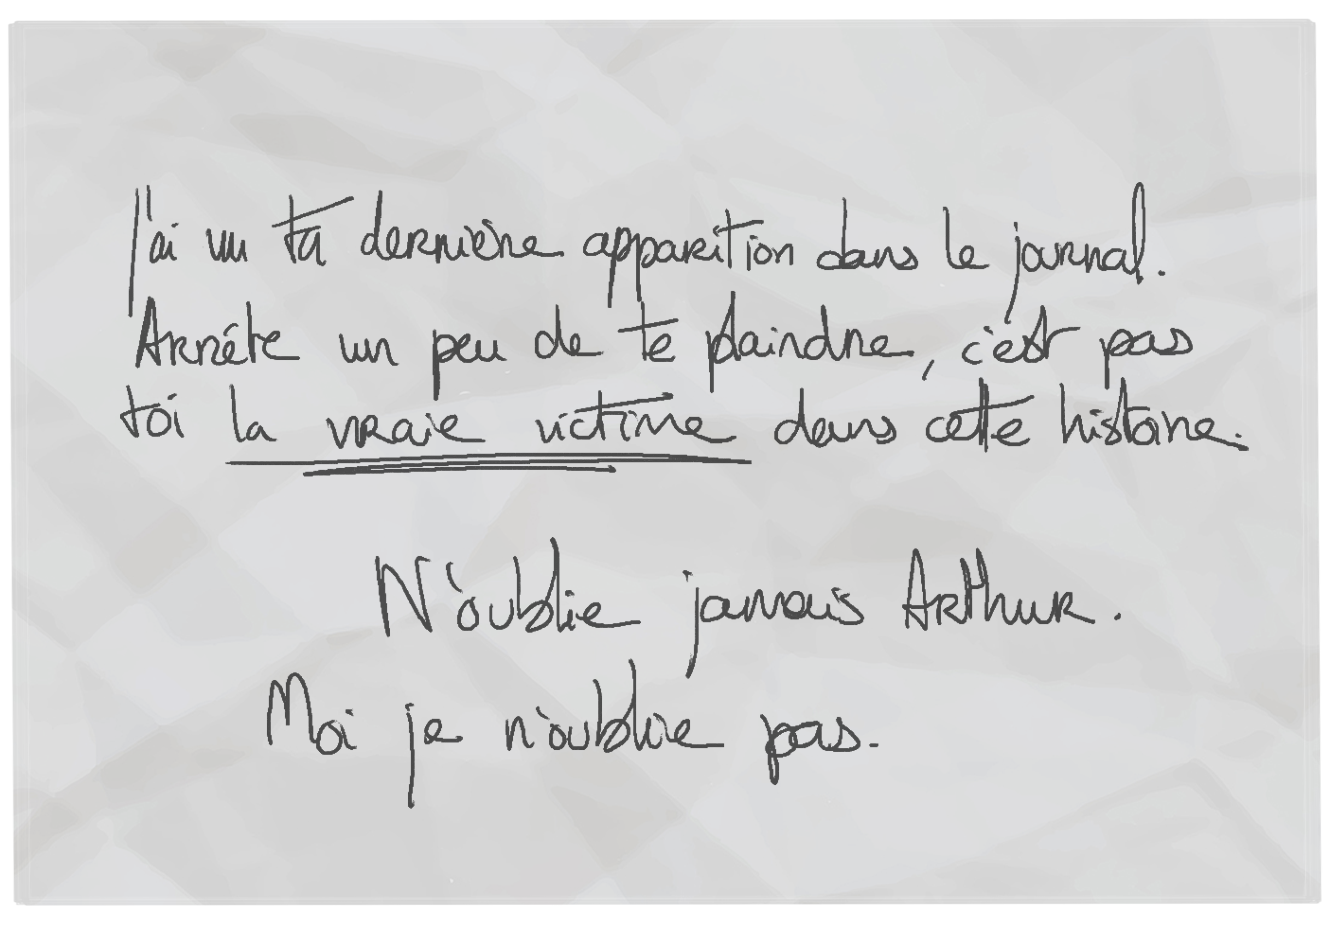 J'ai vu ta dernière apparition dans le journal.
Arrête un peu de te plaindre, c'est pas
toi la vraie victime dans cette histoire.
N'oublie jamais Arthur.
Moi je n'oublie pas.